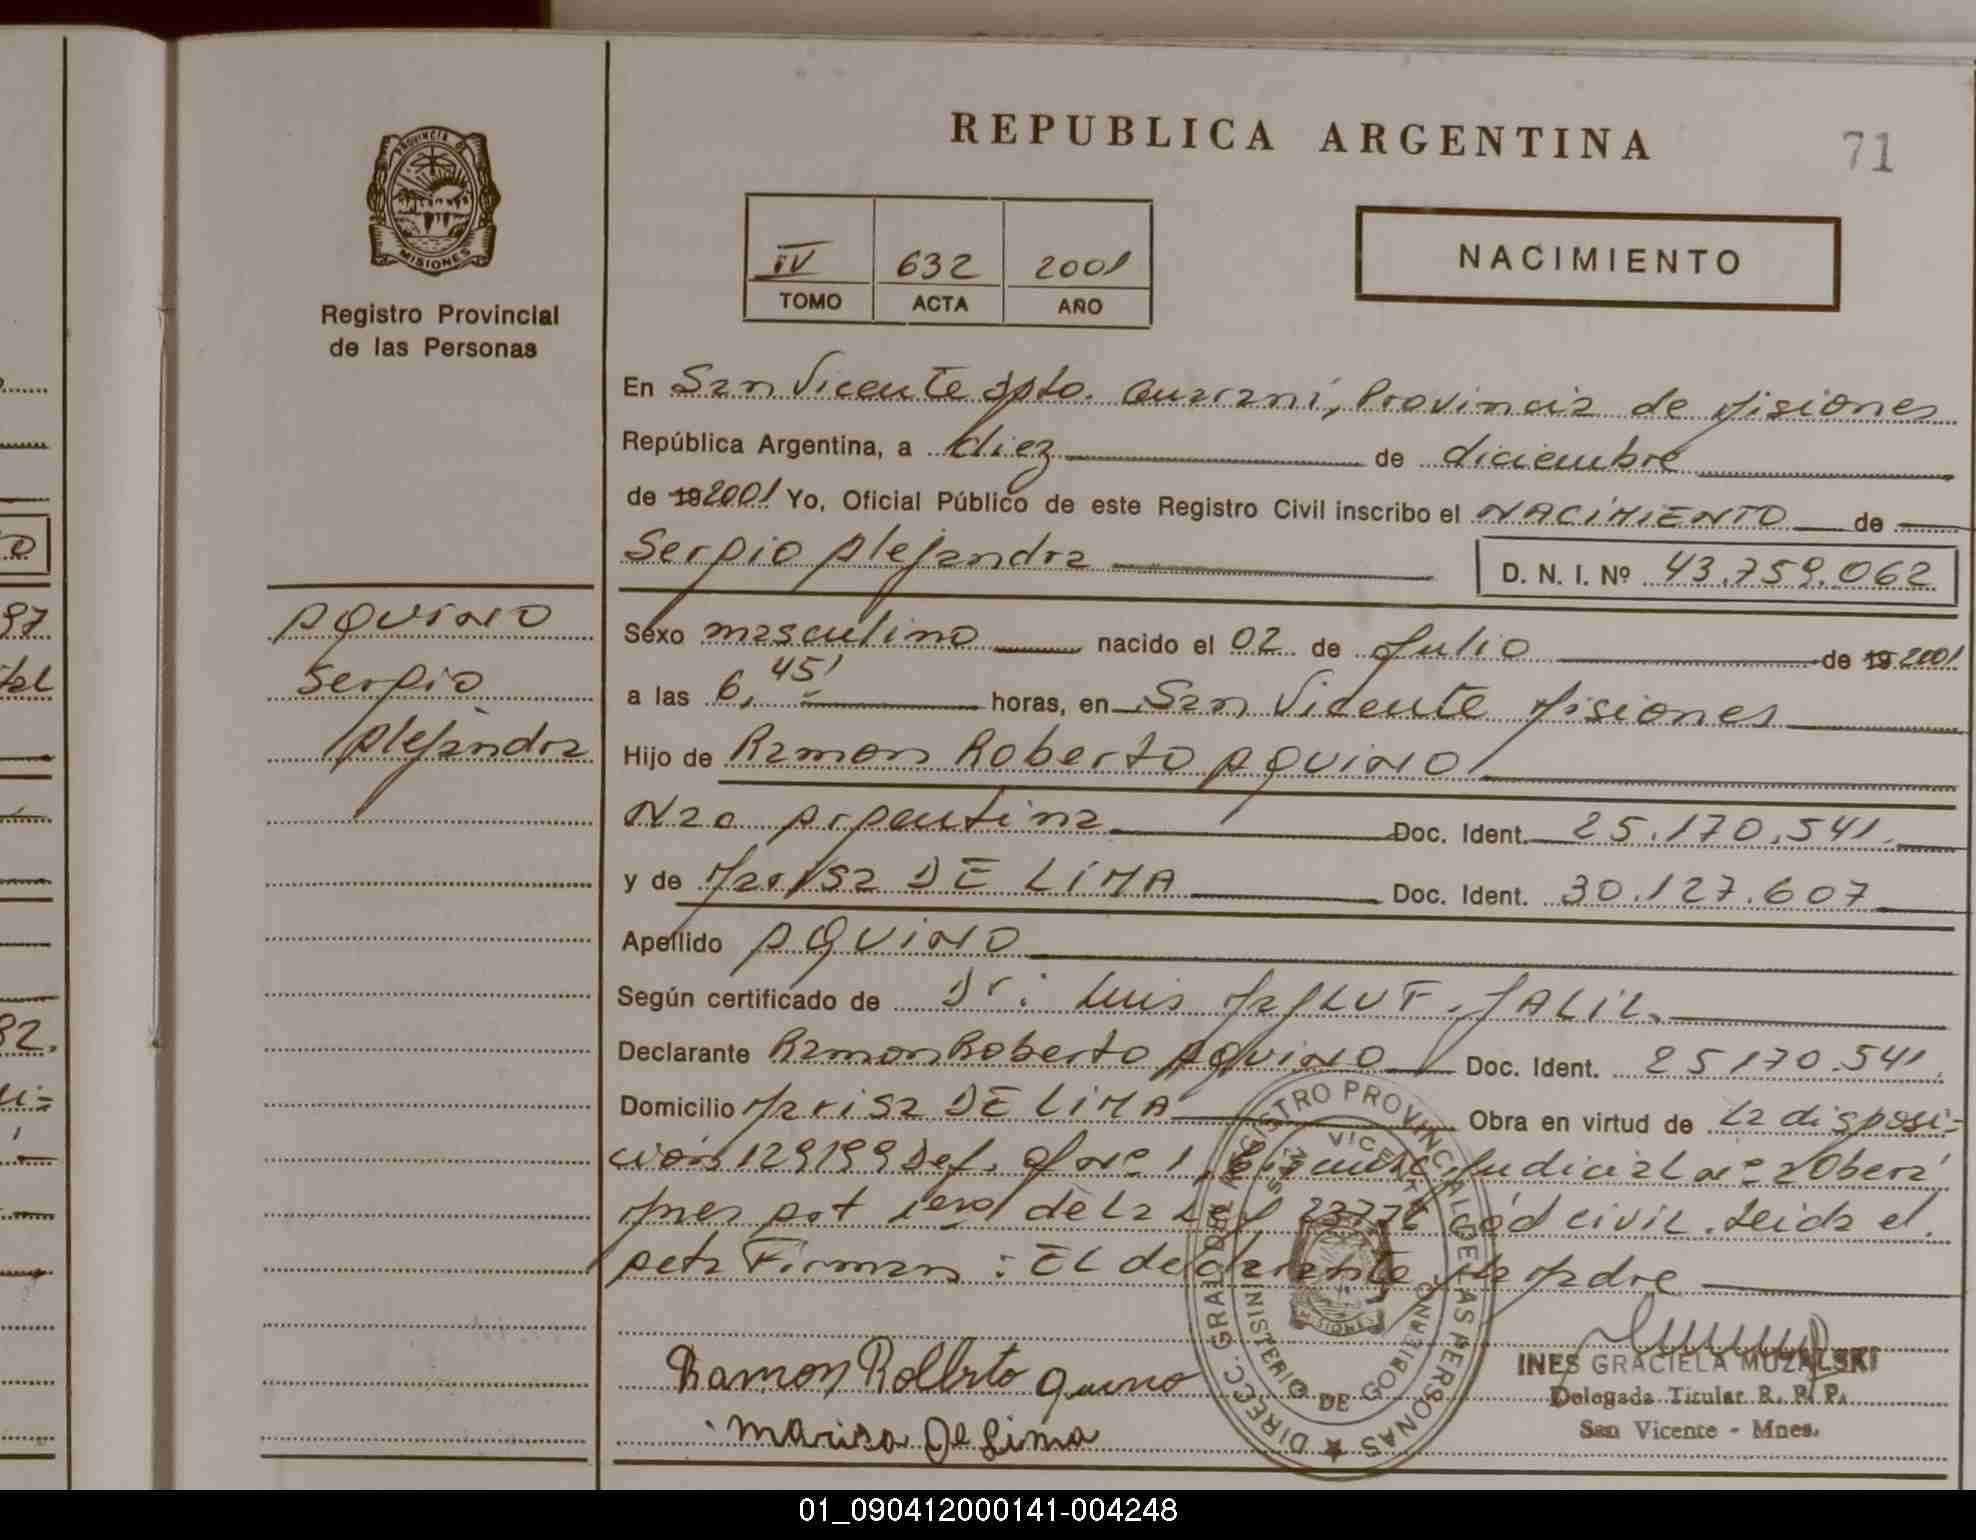 REPUBLICA ARGENTINA
71
PROVINCIA DE
MISIONES
Registro Provincial
de las Personas
IV 632 2001
TOMO ACTA AÑO
NACIMIENTO
En San Vicente dpto. Guaraní, Provincia de Misiones
República Argentina, a diez de diciembre
de 19 2001 Yo, Oficial Público de este Registro Civil inscribo el NACIMIENTO de
Sergio Alejandro
D. N. I. Nº 43.759.062
AQUINO
Sergio
Alejandro
Sexo masculino nacido el 02 de Julio de 19 2001
a las 6,45' horas, en San Vicente Misiones
Hijo de Ramon Roberto AQUINO
Nac Argentina Doc. Ident. 25.170.541
y de Marisa DE LIMA Doc. Ident. 30.127.607
Apellido AQUINO
Según certificado de Dr. Luis JALIL
Declarante Ramon Roberto AQUINO Doc. Ident. 25170.541
Domicilio Marisa DE LIMA Obra en virtud de la disposi=
ción 129/99 Def. Of Nº 1, Judicial Nº 2 Oberá
Mnes art 1ero de la Ley Cód Civil. Leida el
Acta Firman: El declarante la Madre
Ramon Rolberto Quino
Marisa De Lima
DIREC. GRAL DEL REGISTRO PROVINCIAL DE LAS PERSONAS
SAN VICENTE
MINISTERIO DE GOBIERNO
MISIONES
INES GRACIELA MUZALSKI
Delegada Titular R. P. P.
San Vicente - Mnes.
01_090412000141-004248